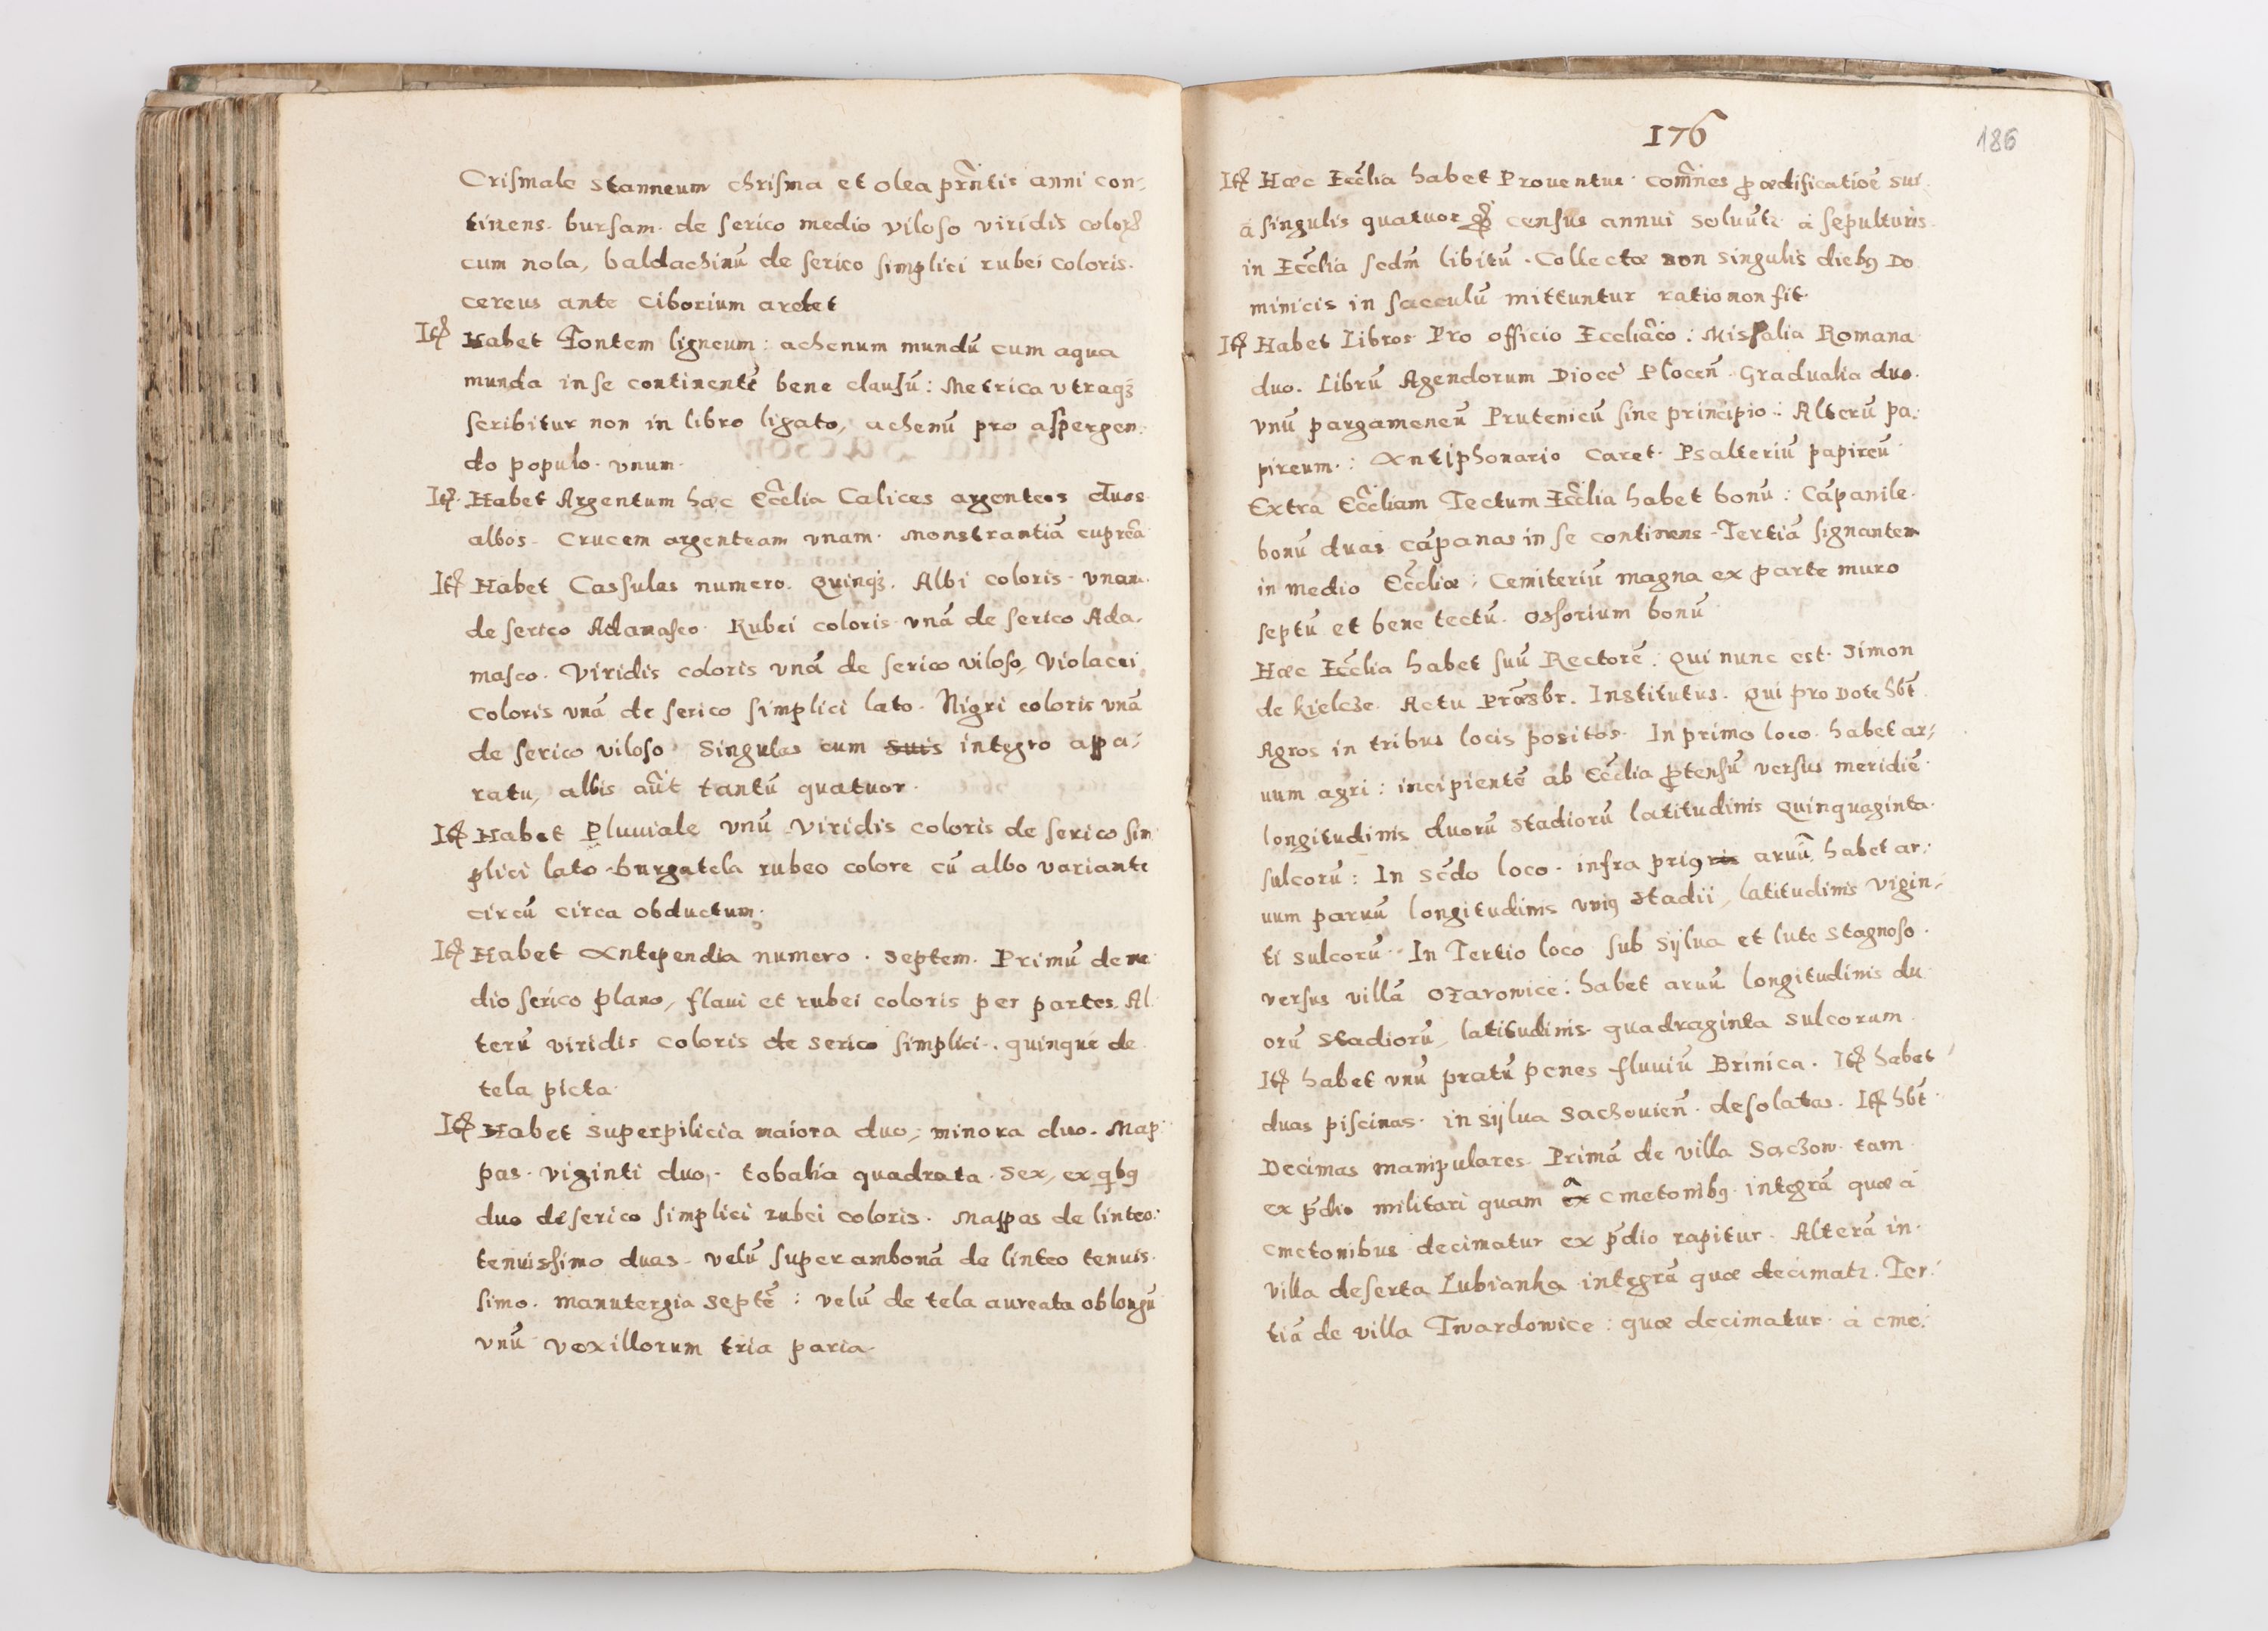 Crismale stanneum chrisma et olea prñtis anni con-
tinens. bursam. de serico medio viloso viridis coloris
cum nola, baldachinū de serico simplici rubei coloris.
cereus ante Ciborium ardet
Itē Habet Fontem ligneum: achenum mundū cum aqua
munda in se continentē bene clausū: Metrica vtraq3
scribitur non in libro ligato, achenū pro aspergen:
do populo. vnum.
Itē. Habet Argentum hæc Eccl̃ia Calices argenteos duos
albos. Crucem argenteam vnam. Monstrantiā cupreā
Itē Habet Cassulas numero. Quinq3. Albi coloris. vnam.
de serico Adamasco. Rubei coloris vnā de serico Ada.
masco. Viridis coloris vnā de serico viloso, Violacei
coloris vnā de serico simplici lato. Nigri coloris vnā
de serico viloso. Singulas cum suis integro appa:
ratu, albis aūt tantū quatuor.
Itē Habet Pluuiale vnū viridis coloris de serico sim
plici lato. burgatela rubeo colore cū albo variante
circū circa obductum.
Itē Habet Antependia numero. Septem. Primū de me
dio serico plano, flaui et rubei coloris per partes. Al
terū viridis coloris de serico simplici. quinque de
tela picta.
Itē Habet superpilicia maiora duo, minora duo. Map
pas. viginti duo, tobalia quadrata. Sex, ex qbꝰ
duo de serico simplici rubei coloris. Mappas de linteo:
tenuissimo duas. velū super ambonā de linteo tenuis
simo. manutergia septē: velū de tela aureata oblongū
vnū vexillorum tria paria.
176
186
Itē Hæc Eccl̃ia habet Prouentus com̃nes p ædificatioē sui
à singulis quatuor gr̃ census annui soluūtr à sepulturis
in Eccl̃ia secdm̄ libitū. Collectæ non singulis diebꝰ Do
minicis in sacculū mittuntur ratio non fit.
Itē Habet Libros Pro officio Eccliãco: Missalia Romana
duo. Librū Agendorum Diocē Plocen̄. Gradualia duo.
vnū pargameneū Prutenicū sine principio: Alterū pa:
pireum: Antiphonario caret. Psalteriū papireū
Extra Eccl̃iam Tectum Eccl̃ia habet bonū: Cāpanile.
bonū duas cāpanas in se continens. Tertiā signantem
in medio Eccl̃iæ: Cemiteriū magna ex parte muro
septū et bene tectū. Ossorium bonū
Hæc Eccl̃ia habet suū Rectorē. Qui nunc est. Simon
de Kielcze. Actu Præsbr. Institutus. Qui pro Dote hb̄t
Agros in tribus locis positos. In primo loco. habet ar:
uum agri: incipientē ab Eccl̃ia ptensū versus meridiē.
longitudinis duorū stadiorū latitudinis Quinquaginta.
sulcorū: In Scdo loco. infra priꝰris aruū habet ar:
uum paruū longitudinis vniꝰ Stadii, latitudinis vigin:
ti sulcorū. In Tertio loco sub sijlua et luto stagnoso.
versus villā Ozarowice: habet aruū longitudinis du
orū stadiorū, latitudinis quadraginta sulcorum
Itē habet vnū pratū penes fluuiū Brinica. Itē habet
duas piscinas. in sijlua Sachouien̄. desolatas. Itē hb̄t
Decimas manipulares. Primā de villa Saczow. tam
ex p̄dio militari quam ex à cmetonibꝰ. integrā quæ à
cmetonibus decimatur ex p̄dio rapitur. Alterā in.
villa deserta Lubianka integrā quæ decimatr. Ter:
tiā de villa Twardowice: quæ decimatur à cme: